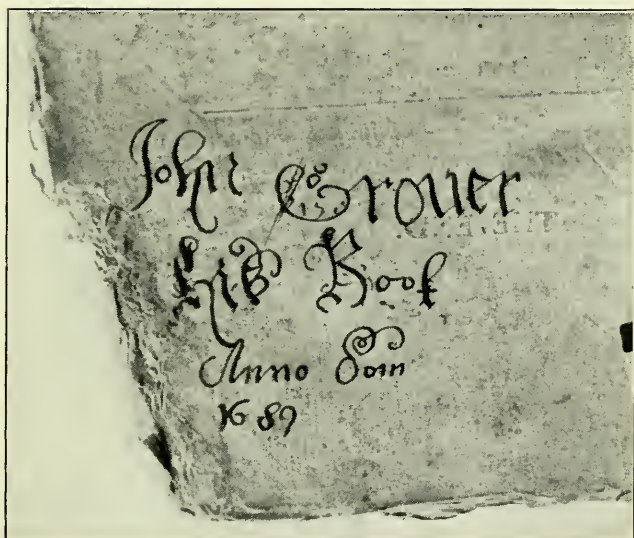 John Grouer
His Book
Anno Dom
1689